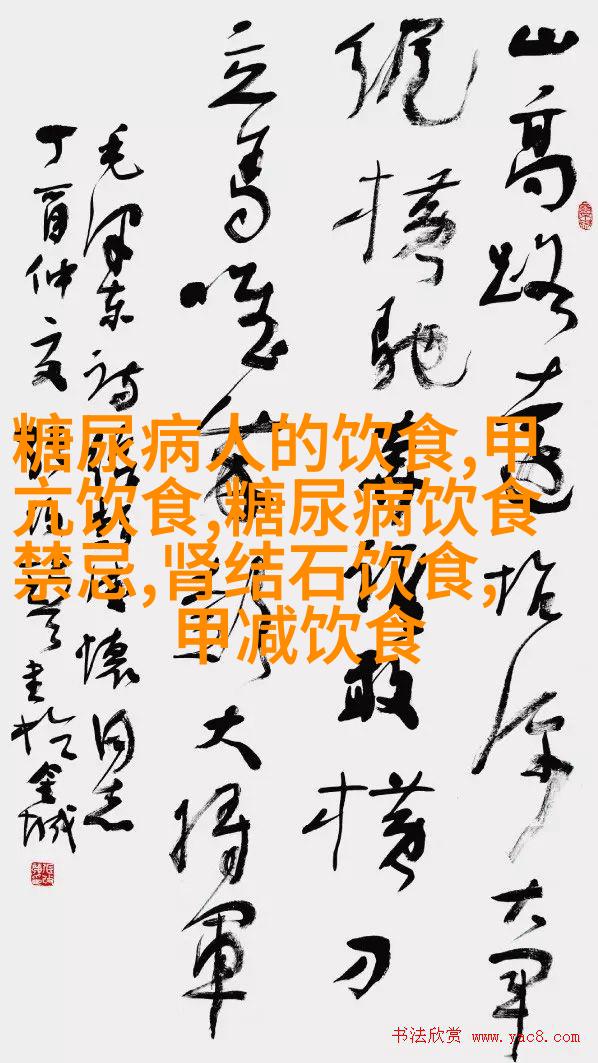 山高路遠坑深大军
纵横驰奔谁敢横刀
立马唯我彭大将軍
毛泽东诗彭德懷同志
丁酉仲夏书於金城
糖尿病人的饮食,甲
亢饮食,糖尿病饮食
禁忌,肾结石饮食,
甲减饮食
书法欣赏 www.yac8.com